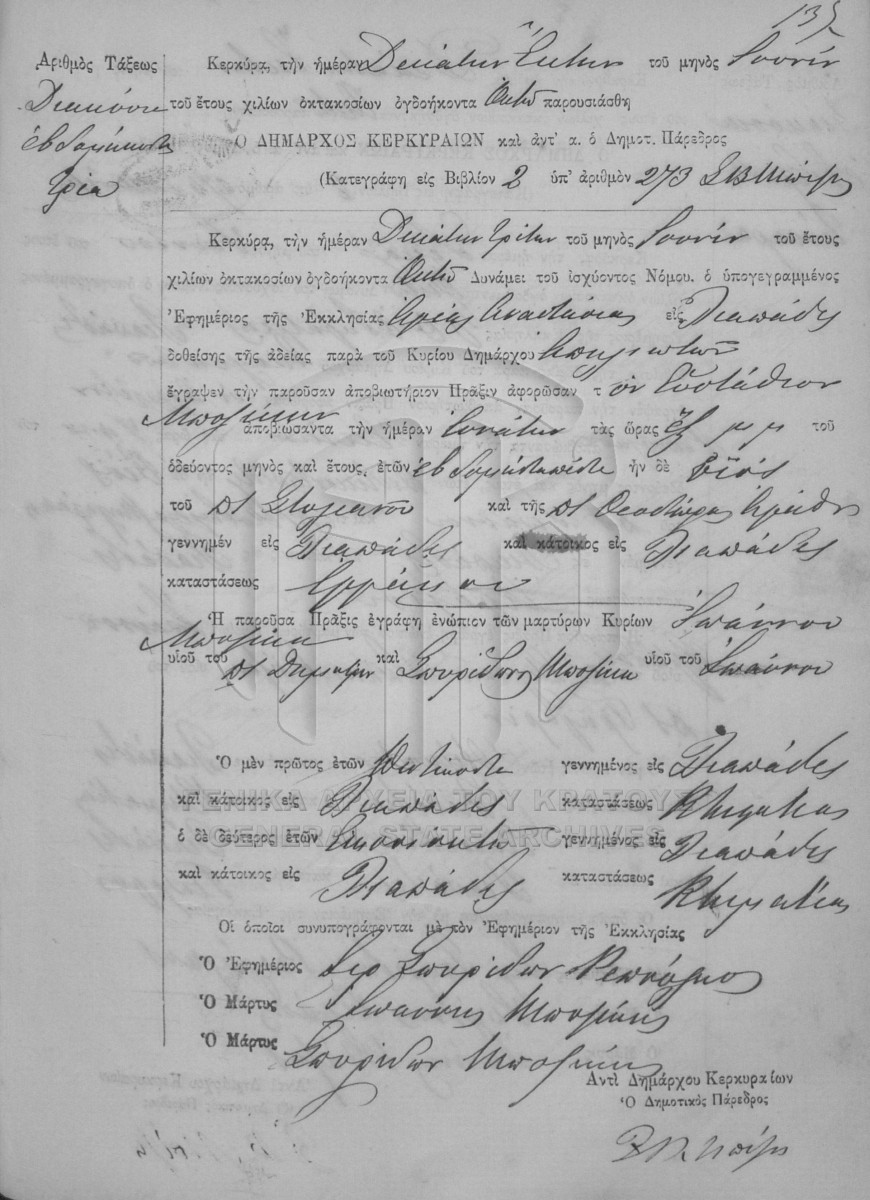 135
Ἀριθμὸς Τάξεως
Διακόσια
ἑβδομήκοντα
τρία
Κερκύρᾳ, τὴν ἡμέραν Δεκάτην Ἕκτην τοῦ μηνὸς Ἰουνίου
τοῦ ἔτους χιλίων ὀκτακοσίων ὀγδοήκοντα Ὀκτὼ παρουσιάσθη
Ὁ ΔΗΜΑΡΧΟΣ ΚΕΡΚΥΡΑΙΩΝ καὶ ἀντ' α. ὁ Δημοτ. Πάρεδρος
(Κατεγράφη εἰς Βιβλίον 2 ὑπ' ἀριθμὸν 273
Κερκύρᾳ, τὴν ἡμέραν Δεκάτην τρίτην τοῦ μηνὸς Ἰουνίου τοῦ ἔτους
χιλίων ὀκτακοσίων ὀγδοήκοντα Ὀκτὼ Δυνάμει τοῦ ἰσχύοντος Νόμου. ὁ ὑπογεγραμμένος
Ἐφημέριος τῆς Ἐκκλησίας Ἁγίας Ἀναστάσιας εἰς Λιαπάδες
δοθείσης τῆς ἀδείας παρὰ τοῦ Κυρίου Δημάρχου
ἔγραψεν τὴν παροῦσαν ἀποβιωτήριον Πρᾶξιν ἀφορῶσαν τ ὸν Εὐστάθιον
Μποζίκην ἀποβιώσαντα τὴν ἡμέραν ἐνάτην τὰς ὥρας ἓξ μ μ τοῦ
ὁδεύοντος μηνὸς καὶ ἔτους, ἐτῶν ἑβδομήντα πέντε ἦν δὲ υἱὸς
τοῦ π͜τ Στυλιανοῦ καὶ τῆς π͜τ Θεοδώρας
γεννημέν εἰς Λιαπάδες καὶ κάτοικος εἰς Λιαπάδες
καταστάσεως Ἐργάτου
Ἡ παροῦσα Πρᾶξις ἐγράφη ἐνώπιον τῶν μαρτύρων Κυρίων Ἰωάννου
Μποζίκη υἱοῦ τοῦ π͜τ Δημητρίου καὶ Σπυρίδωνος Μποζίκη υἱοῦ τοῦ Ἰωάννου
Ὁ μὲν πρῶτος ἐτῶν γεννημένος εἰς Λιαπάδες
καὶ κάτοικος εἰς Λιαπάδες καταστάσεως Κτηματίας
ὁ δὲ δεύτερος ἐτῶν εἰκοσιοκτὼ γεννημένος εἰς Λιαπάδες
καὶ κάτοικος εἰς Λιαπάδες καταστάσεως Κτηματίας
Οἱ ὁποῖοι συνυπογράφονται μὲ τὸν Ἐφημέριον τῆς Ἐκκλησίας
Ὁ Ἐφημέριος Σπυρίδων
Ὁ Μάρτυς Ἰωάννης Μποζίκης
Ὁ Μάρτυς Σπυρίδων Μποζίκης
Ἀντὶ Δημάρχου Κερκυραίων
Ὁ Δημοτικὸς Πάρεδρος
ΓΕΝΙΚΑ ΑΡΧΕΙΑ ΤΟΥ ΚΡΑΤΟΥΣ
GENERAL STATE ARCHIVES